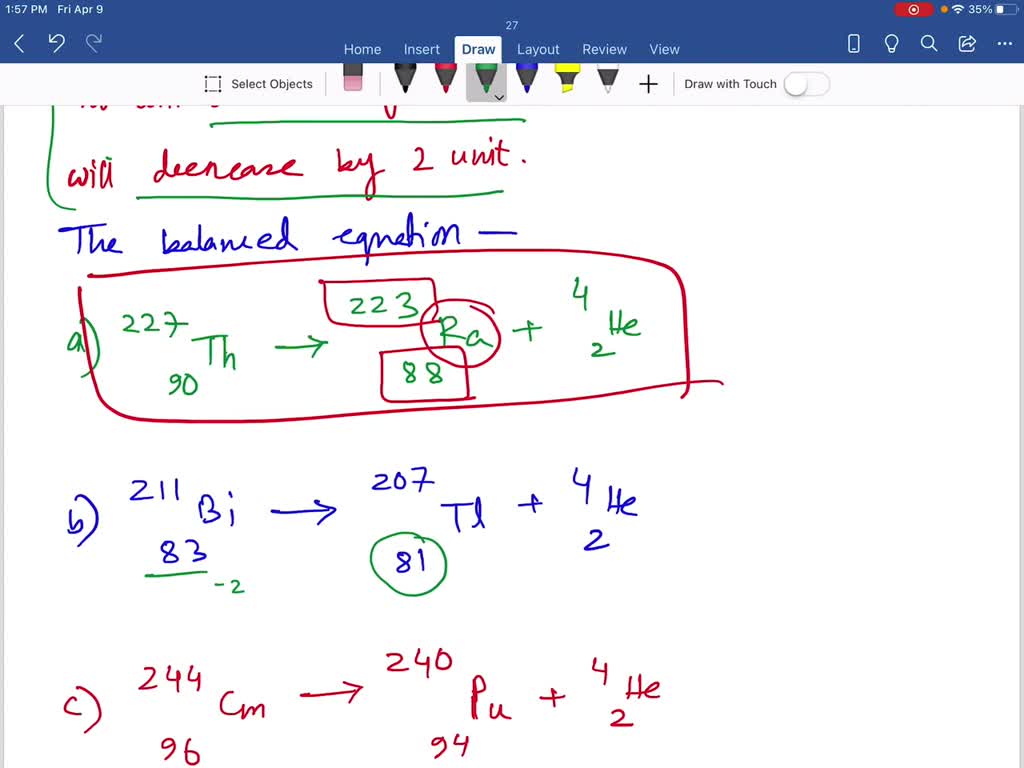 1:57 PM Fri Apr 9 35%
27
Home Insert Draw Layout Review View
Select Objects Draw with Touch
will decrease by 2 unit.
The balanced equation —
a) ²²⁷₉₀Th → ²²³₈₈Ra + ⁴₂He
b) ²¹¹₈₃Bi → ²⁰⁷₈₁Tl + ⁴₂He
-2
c) ²⁴⁴₉₆Cm → ²⁴⁰₉₄Pu + ⁴₂He